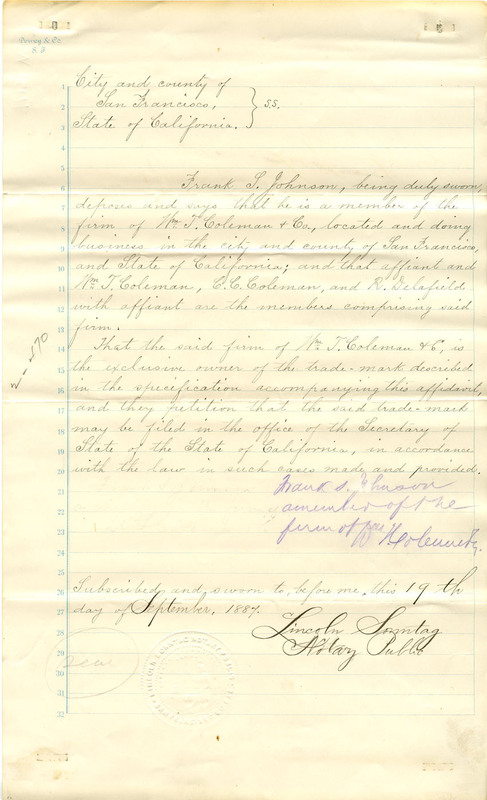 City and county of
San Francisco, } S.S.
State of California.
Frank S. Johnson, being duly sworn,
deposes and says that he is a member of the
firm of Wm T. Coleman & Co., located and doing
business in the city and county of San Francisco,
and State of California; and that affiant and
Wm T. Coleman, C.C. Coleman, and R. Delafield
with affiant are the members comprising said
firm.
That the said firm of Wm T. Coleman & C, is
the exclusive owner of the trade-mark described
in the specification accompanying this affidavit,
and they petition that the said trade-mark
may be filed in the office of the Secretary of
State of the State of California, in accordance
with the law in such cases made and provided.
Frank S. Johnson
a member of the
firm of
Subscribed and sworn to, before me, this 19th
day of September, 1887.
Lincoln Sonntag
Notary Public
Seal
1
2
3
4
5
6
7
8
9
10
11
12
13
14
15
16
17
18
19
20
21
22
23
24
25
26
27
28
29
30
31
32